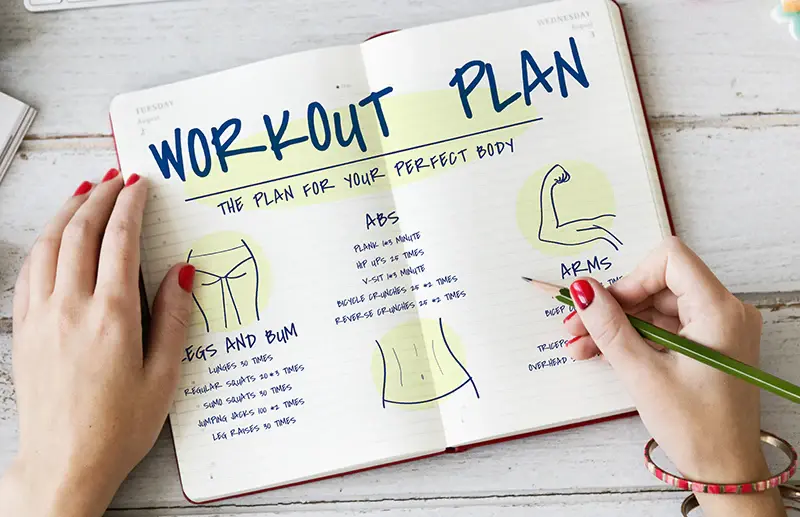 TUESDAY
August
2
TUESDAY
August
WORKOUT PLAN
THE PLAN FOR YOUR PERFECT BODY
LEGS AND BUM
LUNGES 30 TIMES
REGULAR SQUATS 20*3 TIMES
SUMO SQUATS 30 TIMES
JUMPING JACKS 100 *2 TIMES
LEG RAISES 30 TIMES
ABS
PLANK 1*3 MINUTE
HIP UPS 25 TIMES
V-SIT 1*3 MINUTE
BICYCLE CRUNCHES 25 *2 TIMES
REVERSE CRUNCHES 25 *2 TIMES
ARMS
BICEP
TRICEPS
OVERHEAD